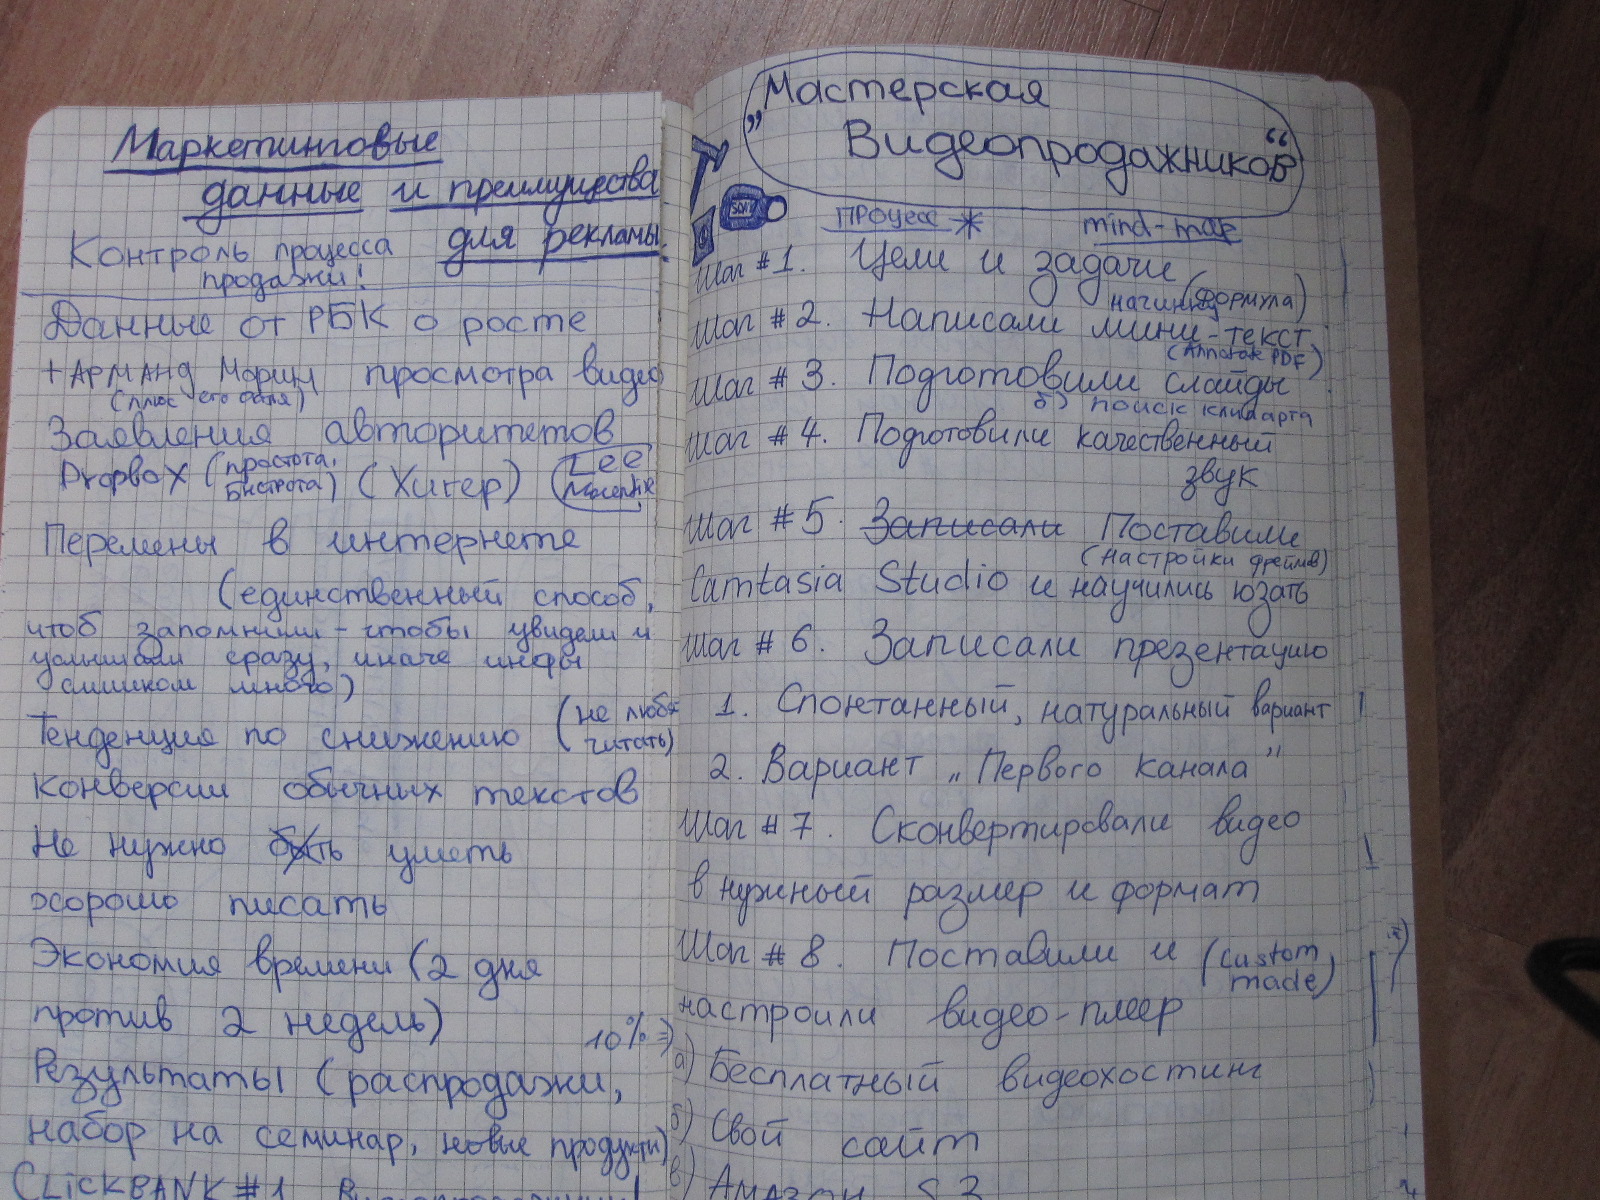 Маркетинговые
данные и преимущества
для рекламы.
Контроль процесса
продажи!
Данные от РБК о росте
+ Арманд Морин просмотра видео
(плюс его доля)
Заявления авторитетов
Dropbox (простота, быстрота) (Хигер) (Lee
Перемены в интернете
(единственный способ,
чтоб запомнили - чтобы увидели и
услышали сразу, иначе инфы
слишком много)
Тенденция по снижению (не любят читать)
конверсии обычных текстов
Не нужно быть уметь
хорошо писать
Экономия времени (2 дня
против 2 недель)
10% =>
Результаты (распродажи,
набор на семинар, новые продукты)
CLICKBANK #1
„Мастерская
Видеопродажников“
SALT
процесс * mind-map
Шаг #1. Цели и задачи
начинку (формула)
Шаг #2. Написали мини-текст
(Annotate PDF)
Шаг #3. Подготовили слайды
б) поиск клипарта
Шаг #4. Подготовили качественный
звук
Шаг #5. Записали Поставили
(настройки фреймов)
Camtasia Studio и научились юзать
Шаг #6. Записали презентацию
1. Спонтанный, натуральный вариант
2. Вариант „Первого канала”
Шаг #7. Сконвертировали видео
в нужный размер и формат
Шаг #8. Поставили и (custom made)
настроили видео-плеер
а) Бесплатный видеохостинг
б) Свой сайт
в) Амазон S3